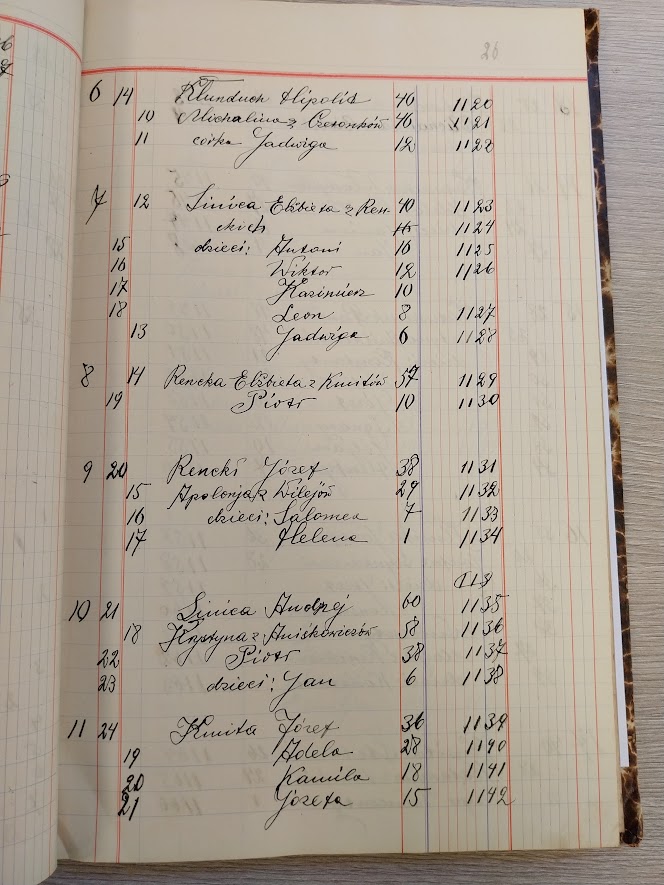 26
6 14 Klunduch Hipolit 46 1120
10 Michalina z Czesonków 46 1121
11 córka Jadwiga 12 1122
7 12 Sinica Elżbieta z Ren- 40 1123
ckich 15 1124
15 dzieci: Antoni 16 1125
16 Wiktor 12 1126
17 Kazimierz 10
18 Leon 8 1127
13 Jadwiga 6 1128
8 14 Rencka Elżbieta z Kmitów 57 1129
19 Piotr 10 1130
9 20 Rencki Józef 38 1131
15 Apolonja z Wilejów 29 1132
16 dzieci: Salomea 7 1133
17 Helena 1 1134
10 21 Sinica Andrzej 60 1135
18 Krystyna z Aniśkowiczów 58 1136
22 Piotr 38 1137
23 dzieci: Jan 6 1138
11 24 Kmita Józef 36 1139
19 Adela 28 1140
20 Kamila 18 1141
21 Józefa 15 1142